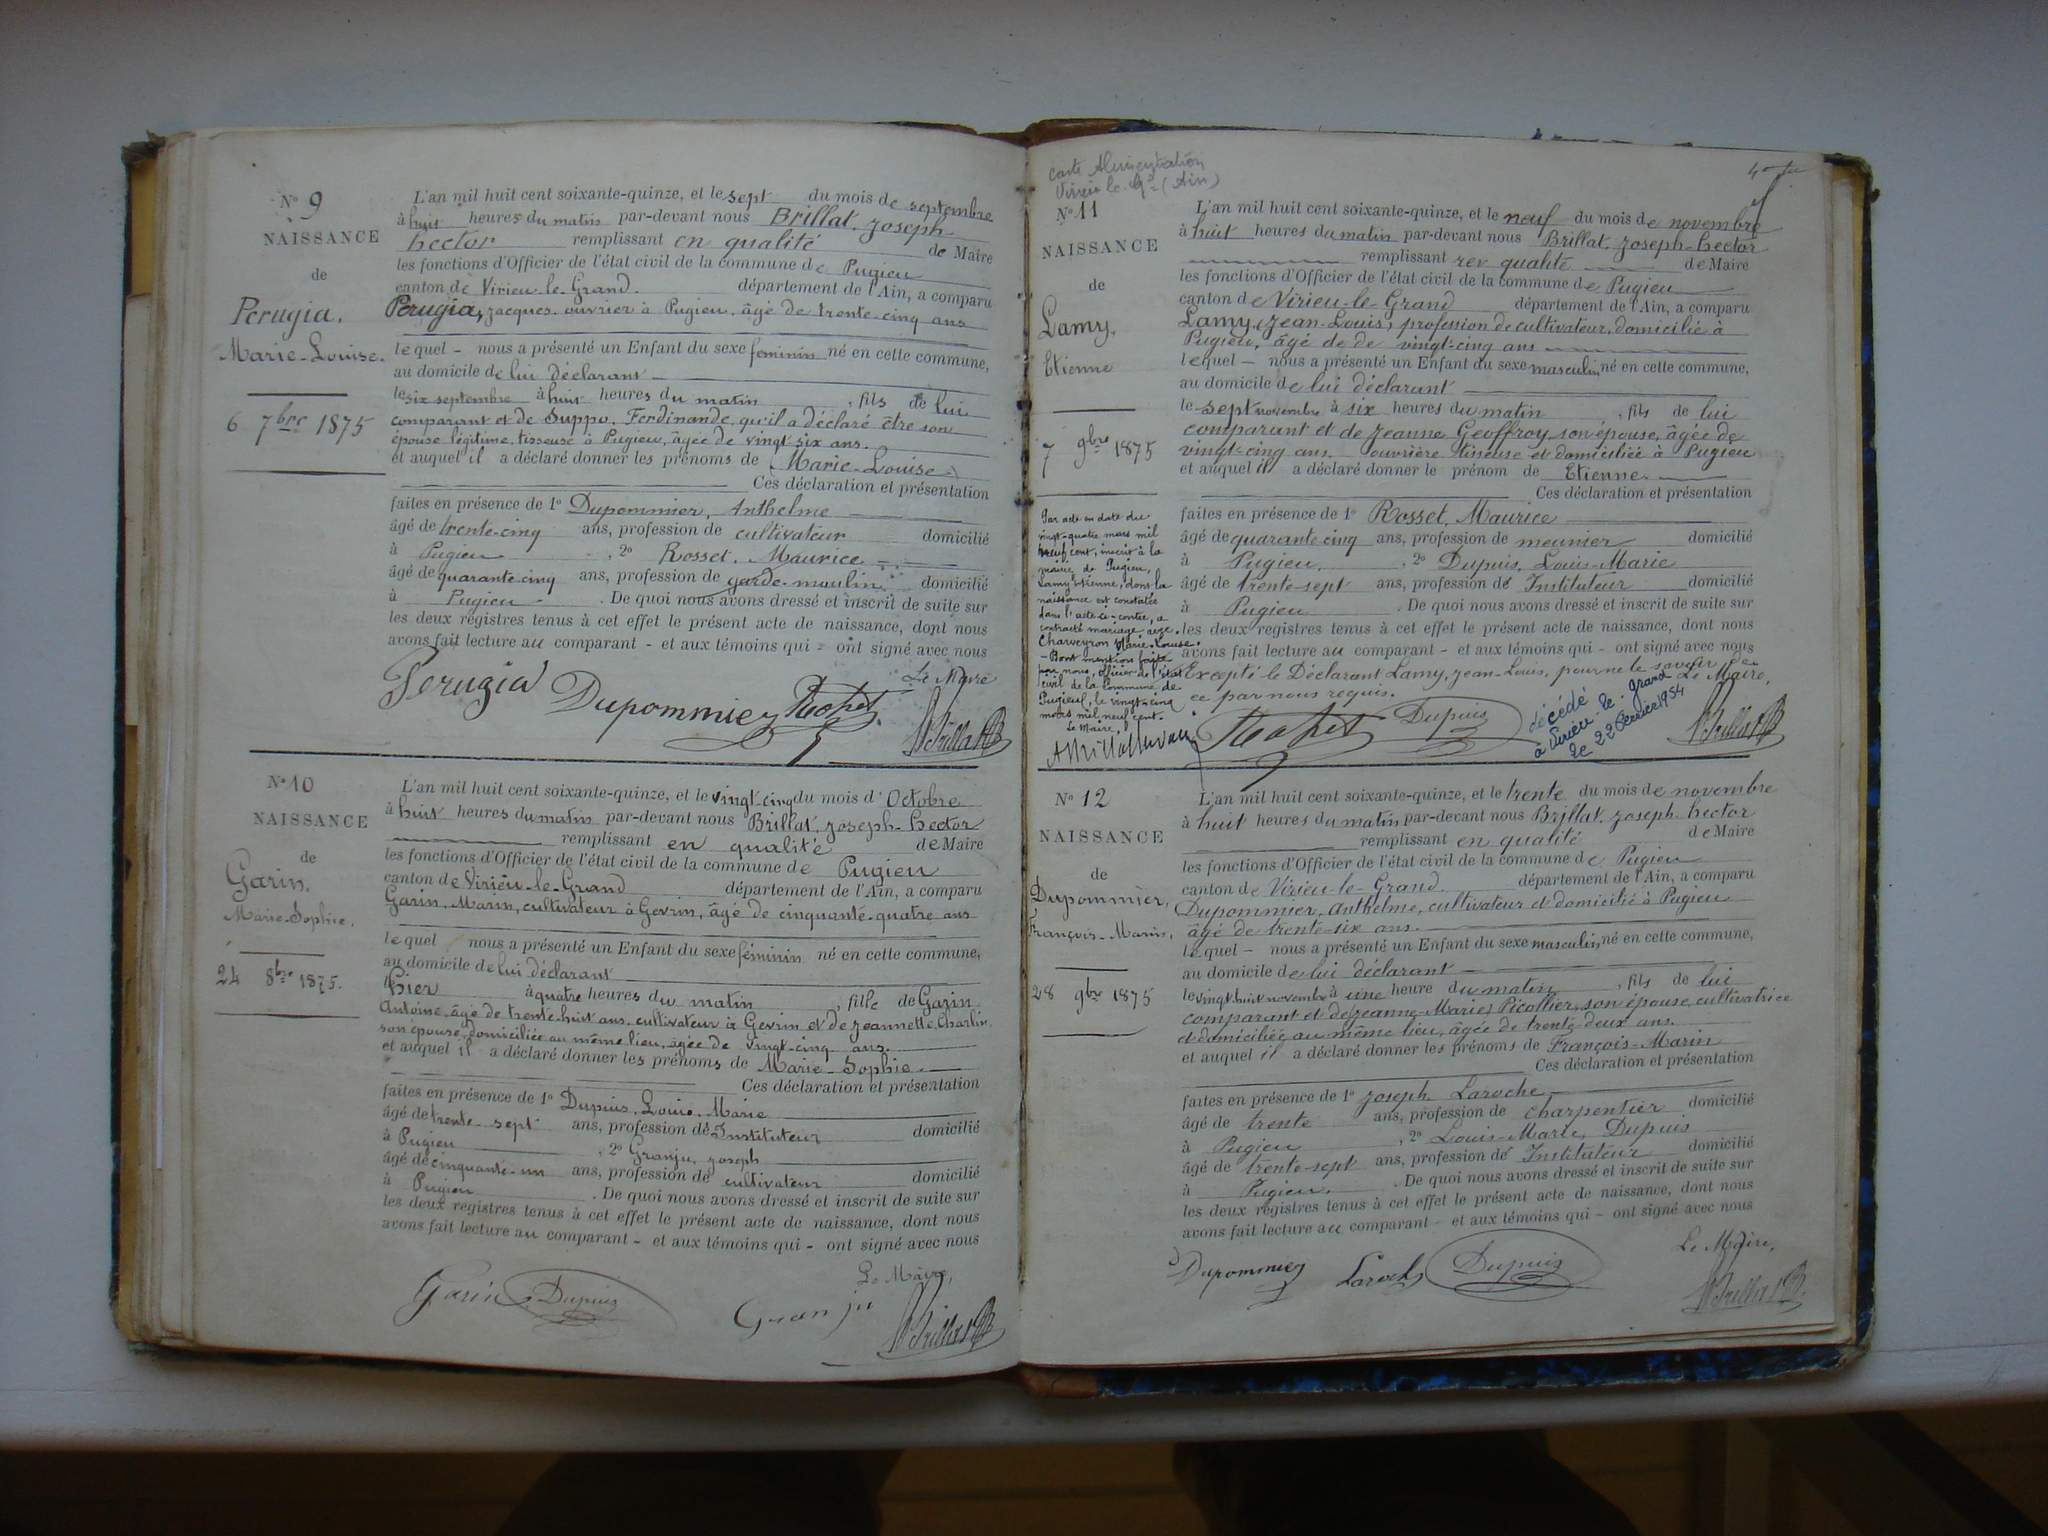 N° 9
NAISSANCE
de
Perugia.
Marie-Louise.
6 7bre 1875
L'an mil huit cent soixante-quinze, et le sept du mois de septembre
à huit heures du matin par-devant nous Brillat, Joseph-
hector remplissant en qualité de Maire
les fonctions d'Officier de l'état civil de la commune de Pugieu
canton de Virieu-le-Grand. département de l'Ain, a comparu
Perugia, Jacques, ouvrier à Pugieu, âgé de trente-cinq ans
lequel - nous a présenté un Enfant du sexe feminin né en cette commune,
au domicile de lui déclarant
le six septembre à huit heures du matin , fils de lui
comparant et de Suppo, Ferdinande, qu'il a déclaré être son
épouse légitime, tisseuse à Pugieu, âgée de vingt-six ans.
et auquel il a déclaré donner les prénoms de (Marie-Louise)
Ces déclaration et présentation
faites en présence de 1° Dupommier, Anthelme
âgé de trente-cinq ans, profession de cultivateur domicilié
à Pugieu , 2° Rosset, Maurice
âgé de quarante-cinq ans, profession de garde-moulin domicilié
à Pugieu . De quoi nous avons dressé et inscrit de suite sur
les deux registres tenus à cet effet le présent acte de naissance, dont nous
avons fait lecture au comparant - et aux témoins qui - ont signé avec nous
Le Maire
Perugia Dupommier Rosset Brillat
N° 10
NAISSANCE
de
Garin.
Marie-Sophie.
24 8bre 1875.
L'an mil huit cent soixante-quinze, et le vingt-cinq du mois d'Octobre
à huit heures du matin par-devant nous Brillat, Joseph-hector
remplissant en qualité de Maire
les fonctions d'Officier de l'état civil de la commune de Pugieu
canton de Virieu-le-Grand département de l'Ain, a comparu
Garin, Marin, cultivateur à Gevrin, âgé de cinquante-quatre ans
lequel nous a présenté un Enfant du sexe féminin né en cette commune,
au domicile de lui déclarant
hier à quatre heures du matin , fille de Garin
Antoine, âgé de trente-huit ans, cultivateur à Gevrin et de Jeannette Charlin
son épouse, domiciliée au même lieu, âgée de vingt-cinq ans.
et auquel il a déclaré donner les prénoms de Marie-Sophie.
Ces déclaration et présentation
faites en présence de 1° Dupuis, Louis-Marie
âgé de trente-sept ans, profession de Instituteur domicilié
à Pugieu , 2° Granju, Joseph
âgé de cinquante-un ans, profession de cultivateur domicilié
à Pugieu . De quoi nous avons dressé et inscrit de suite sur
les deux registres tenus à cet effet le présent acte de naissance, dont nous
avons fait lecture au comparant - et aux témoins qui - ont signé avec nous
Le Maire,
Garin Dupuis Granju Brillat
Carte Alimentation
Virieu le Gd (Ain)
N° 11
NAISSANCE
de
Lamy.
Etienne
7 9bre 1875
Par acte en date du
vingt-quatre mars mil
neuf cent, inscrit à la
mairie de Pugieu,
Lamy Etienne, dont la
naissance est constatée
dans l'acte ci-contre, a
contracté mariage avec
Charveyron Marie-Louise.
- Dont mention faite
par nous, officier de l'état
civil de la Commune de
Pugieu, le vingt-cinq
mars mil neuf cent.
Le Maire,
L'an mil huit cent soixante-quinze, et le neuf du mois de novembre
à huit heures du matin par-devant nous Brillat, Joseph-hector
remplissant qualité de Maire
les fonctions d'Officier de l'état civil de la commune de Pugieu
canton de Virieu-le-Grand département de l'Ain, a comparu
Lamy, Jean-Louis, profession de cultivateur, domicilié à
Pugieu, âgé de de vingt-cinq ans
lequel - nous a présenté un Enfant du sexe masculin né en cette commune,
au domicile de lui déclarant
le sept novembre à six heures du matin , fils de lui
comparant et de Jeanne Geoffroy son épouse, âgée de
vingt-cinq ans ouvrière tisseuse et domiciliée à Pugieu
et auquel il a déclaré donner le prénom de Etienne.
Ces déclaration et présentation
faites en présence de 1° Rosset, Maurice
âgé de quarante-cinq ans, profession de meunier domicilié
à Pugieu, , 2° Dupuis, Louis-Marie
âgé de trente-sept ans, profession de Instituteur domicilié
à Pugieu . De quoi nous avons dressé et inscrit de suite sur
les deux registres tenus à cet effet le présent acte de naissance, dont nous
avons fait lecture au comparant - et aux témoins qui - ont signé avec nous
Excepté le Déclarant Lamy, Jean-Louis, pour ne le savoir
ce par nous requis. Le Maire,
Rosset Dupuis Brillat
décédé
à Virieu-le-grand
le 22 Février 1954
N° 12
NAISSANCE
de
Dupommier,
François-Marin,
28 9bre 1875
L'an mil huit cent soixante-quinze, et le trente du mois de novembre
à huit heures du matin par-devant nous Brillat, Joseph-hector
remplissant en qualité de Maire
les fonctions d'Officier de l'état civil de la commune de Pugieu
canton de Virieu-le-Grand département de l'Ain, a comparu
Dupommier, Anthelme, cultivateur et domicilié à Pugieu
âgé de trente-six ans.
lequel - nous a présenté un Enfant du sexe masculin né en cette commune,
au domicile de lui déclarant
le vingt-huit novembre à une heure du matin , fils de lui
comparant et de (Jeanne-Marie) Picollier, son épouse, cultivatrice
et domiciliée au même lieu, âgée de trente-deux ans.
et auquel il a déclaré donner les prénoms de François-Marin
Ces déclaration et présentation
faites en présence de 1° Joseph Laroche
âgé de trente ans, profession de charpentier domicilié
à Pugieu , 2° Louis-Marie, Dupuis
âgé de trente-sept ans, profession de Instituteur domicilié
à Pugieu. . De quoi nous avons dressé et inscrit de suite sur
les deux registres tenus à cet effet le présent acte de naissance, dont nous
avons fait lecture au comparant - et aux témoins qui - ont signé avec nous
Le Maire,
Dupommier Laroche Dupuis Brillat